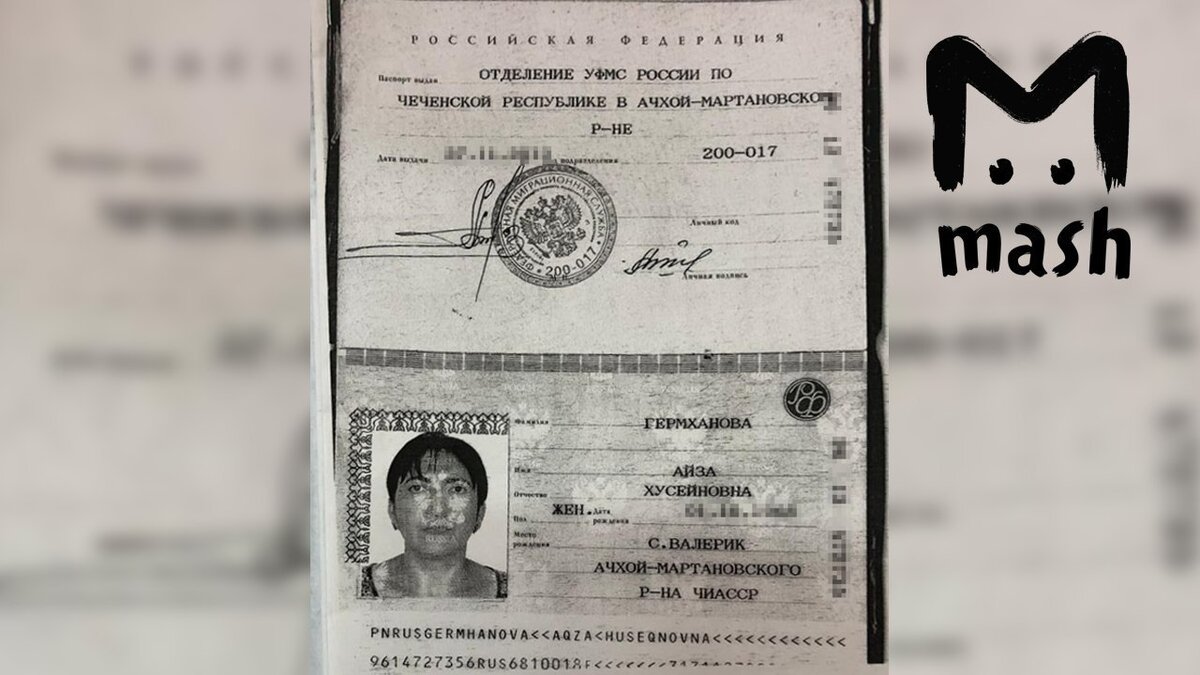 РОССИЙСКАЯ ФЕДЕРАЦИЯ
Паспорт выдан ОТДЕЛЕНИЕ УФМС РОССИИ ПО
ЧЕЧЕНСКОЙ РЕСПУБЛИКЕ В АЧХОЙ-МАРТАНОВСКО
Р-НЕ
Дата выдачи подразделения 200-017
ФЕДЕРАЛЬНАЯ МИГРАЦИОННАЯ СЛУЖБА
200-017
Личный код
Личная подпись
РФ
Фамилия ГЕРМХАНОВА
Имя АЙЗА
Отчество ХУСЕЙНОВНА
Пол ЖЕН. Дата рождения
Место рождения С.ВАЛЕРИК
АЧХОЙ-МАРТАНОВСКОГО
Р-НА ЧИАССР
PNRUSGERMHANOVA<<AQZA<HUSEQNOVNA<<<<<<<<<<<<
mash